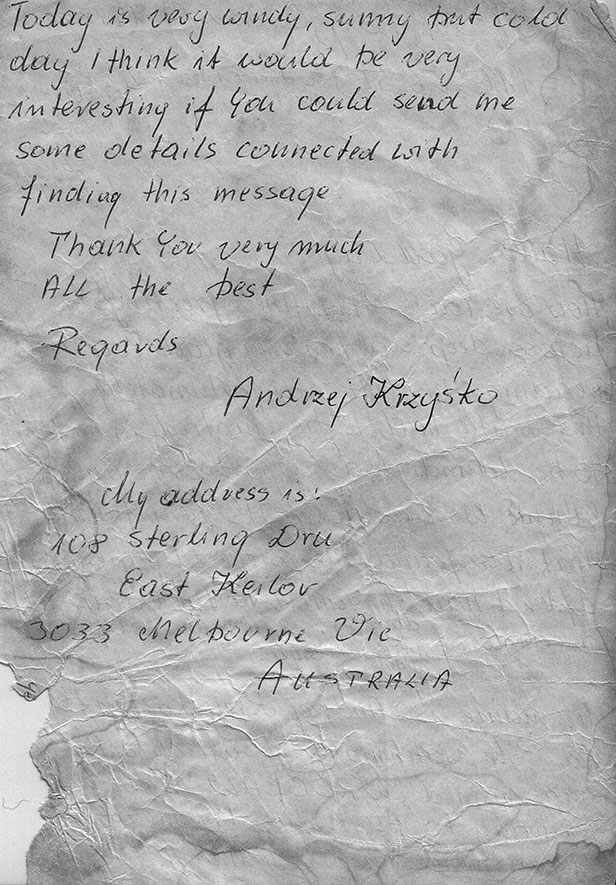 Today is very windy, sunny but cold
day I think it would be very
interesting if You could send me
some details connected with
finding this message
Thank You very much
ALL the best
Regards
Andrzej Krzyśko
My address is:
108 Sterling Drv
East Keilor
3033 Melbourne Vic
AUSTRALIA